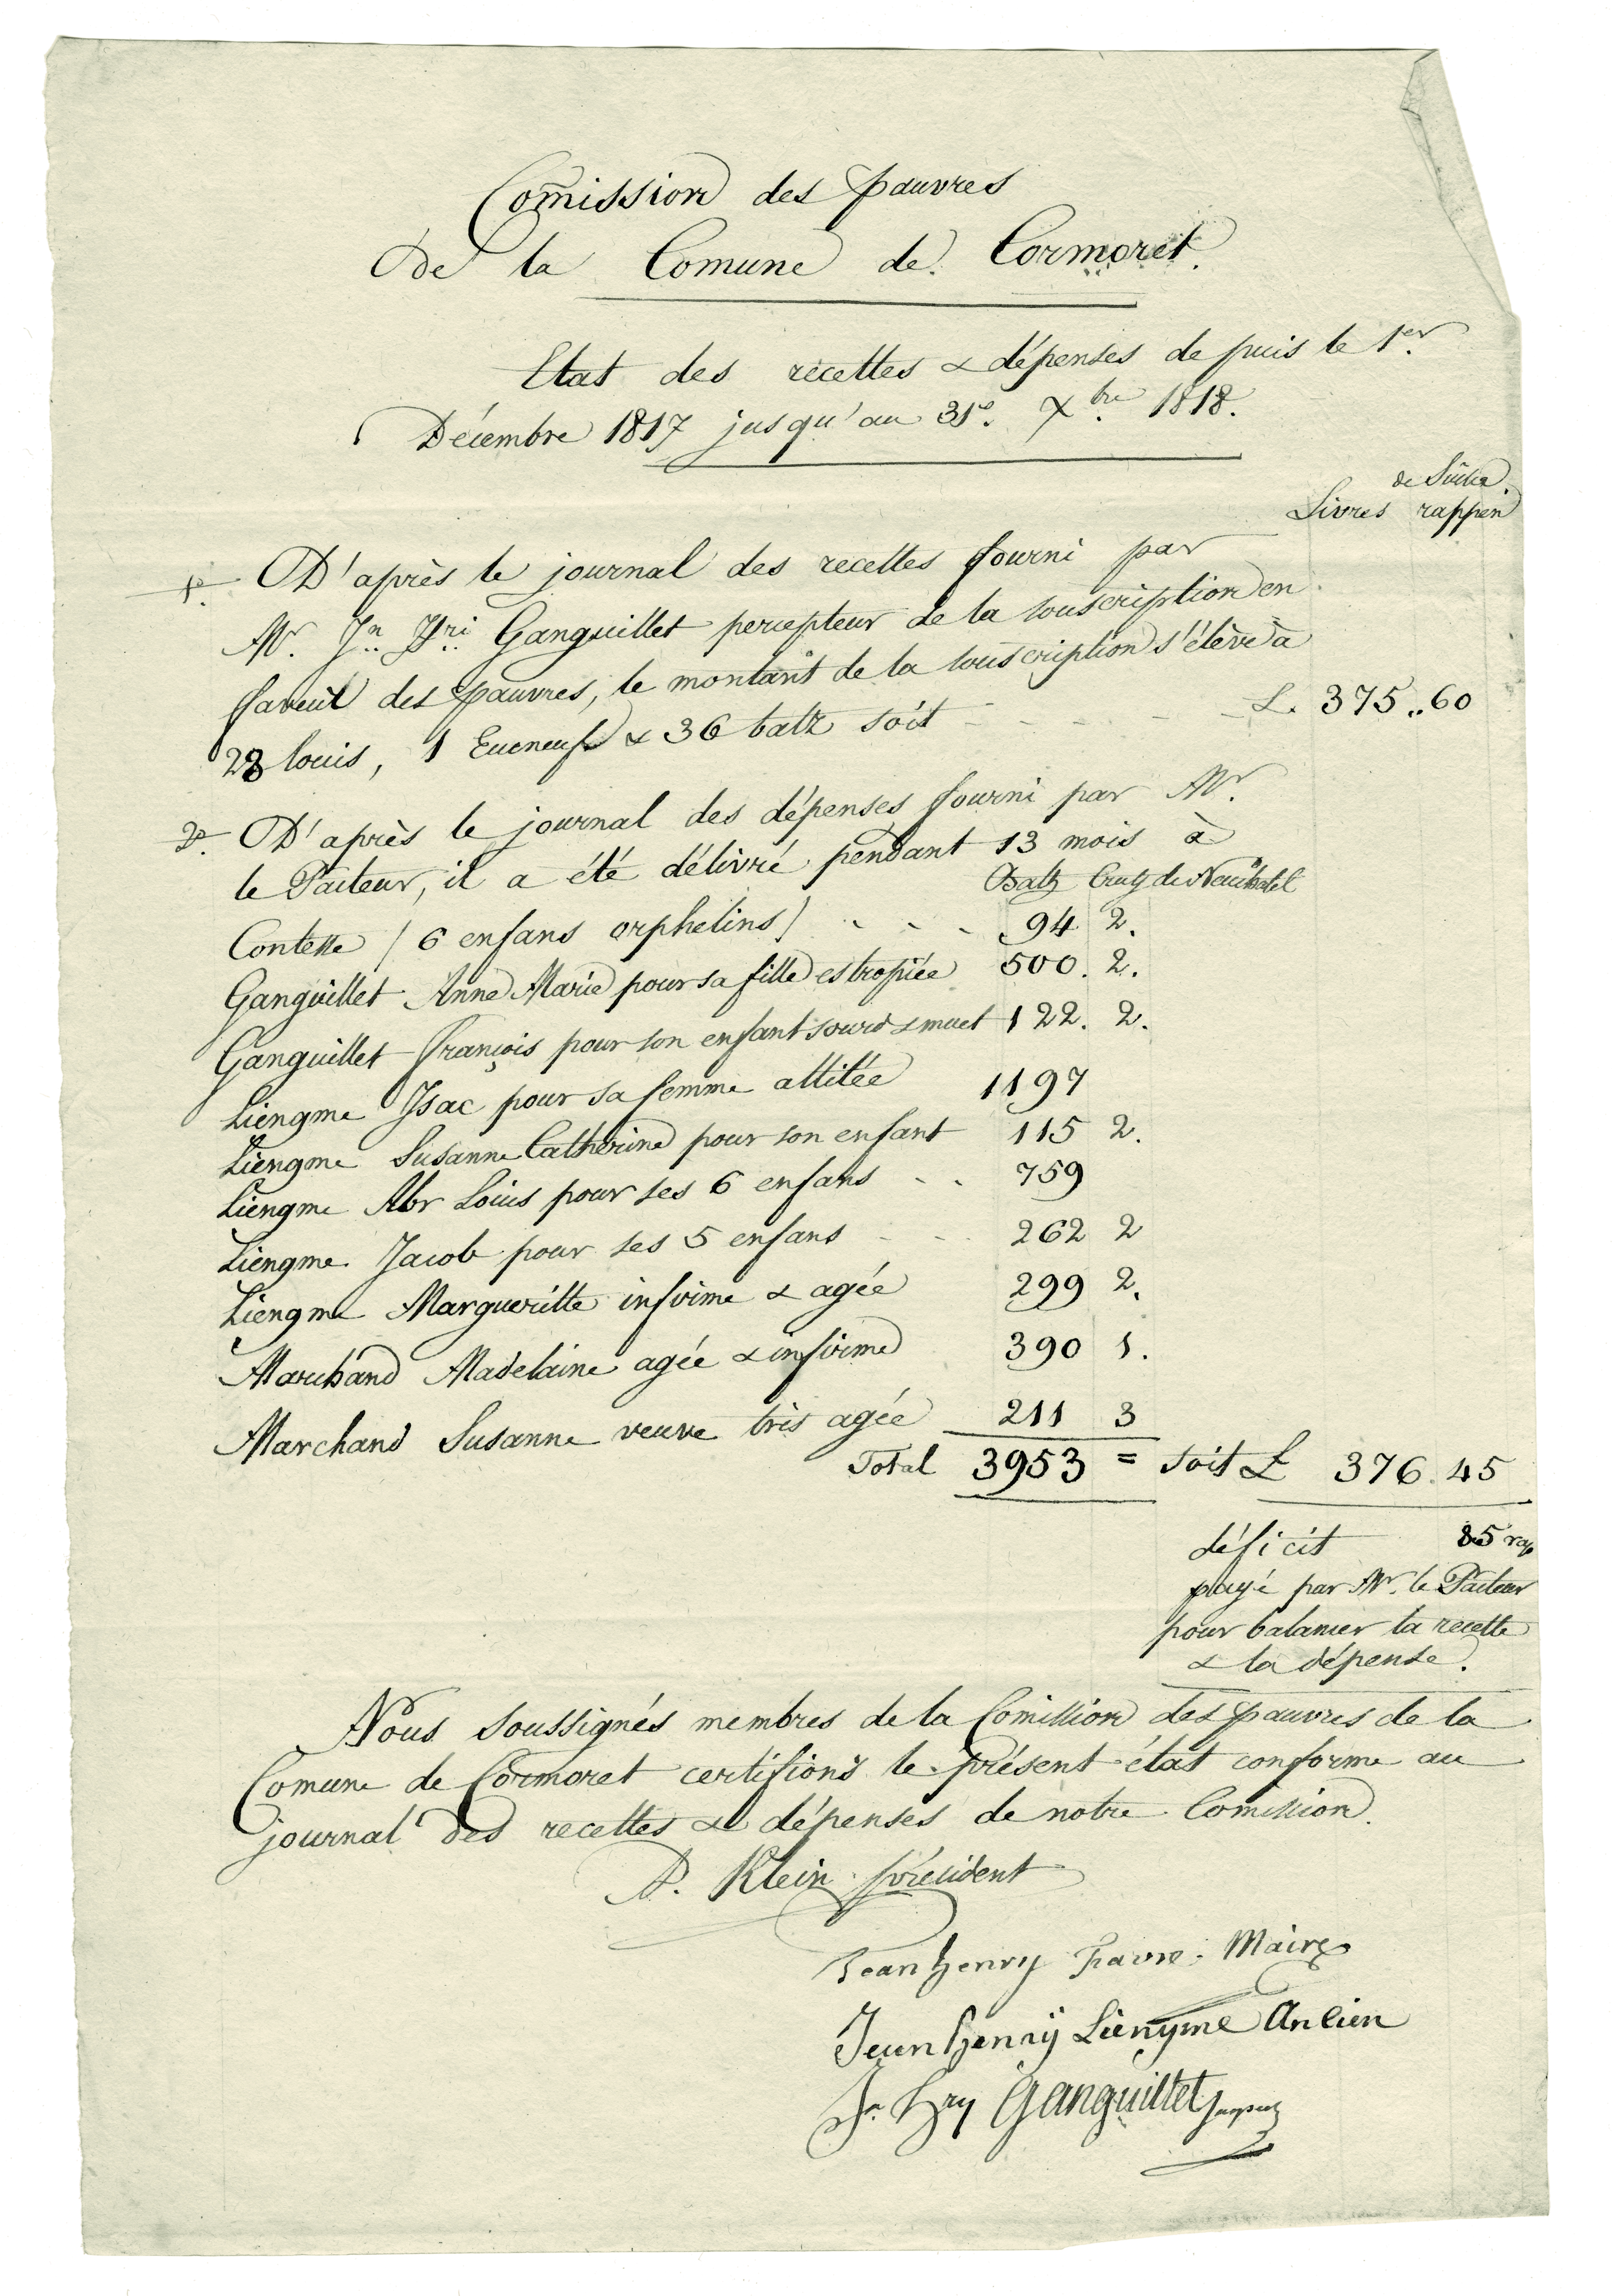 Com̄ission des pauvres
De la Comune de Cormoret.
Etat des recettes & dépenses de puis le 1er.
Décembre 1817 jusqu'au 31e. Xbre. 1818.
de Suisse.
Livres rappen
1o. D'après le journal des recettes fourni par
Mr. Jn. Hri. Ganguillet percepteur de la souscription en
faveur des pauvres, le montant de la souscription s'élève à
23 louis, 1 Ecuneuf & 36 batz soit - - - - - L. 375..60
2o. D'après le journal des dépenses fourni par Mr.
le Pasteur, il a été délivré pendant 13 mois à
Batz Crutz de Neuchatel
Contesse / 6 enfans orphelins / - - - 94 2.
Ganguillet Anne Marie pour sa fille estropiée 500. 2.
Ganguillet François pour son enfant sourd & muet 122. 2.
Liengme Isac pour sa femme allitée 1197
Liengme Susanne Catherine pour son enfant 115 2.
Liengme Abr Louis pour ses 6 enfans - - 759
Liengme Jacob pour ses 5 enfans - - 262 2
Liengme Margueritte infirme & agée 299 2.
Marchand Madelaine agée & infirme 390 1.
Marchand Susanne veuve très agée 211 3
Total 3953 = soit L 376.45
déficit 85 rap
payé par Mr. le Pasteur
pour balancer la recette
& la dépense.
Nous soussignés membres de la Comission des pauvres de la
Comune de Cormoret certifions le présent état conforme au
journal des recettes & dépenses de notre Comission.
Klein président
Jean henry Favre. Maire
Jean henrÿ Liengme Ancien
Jn. Hry Ganguillet